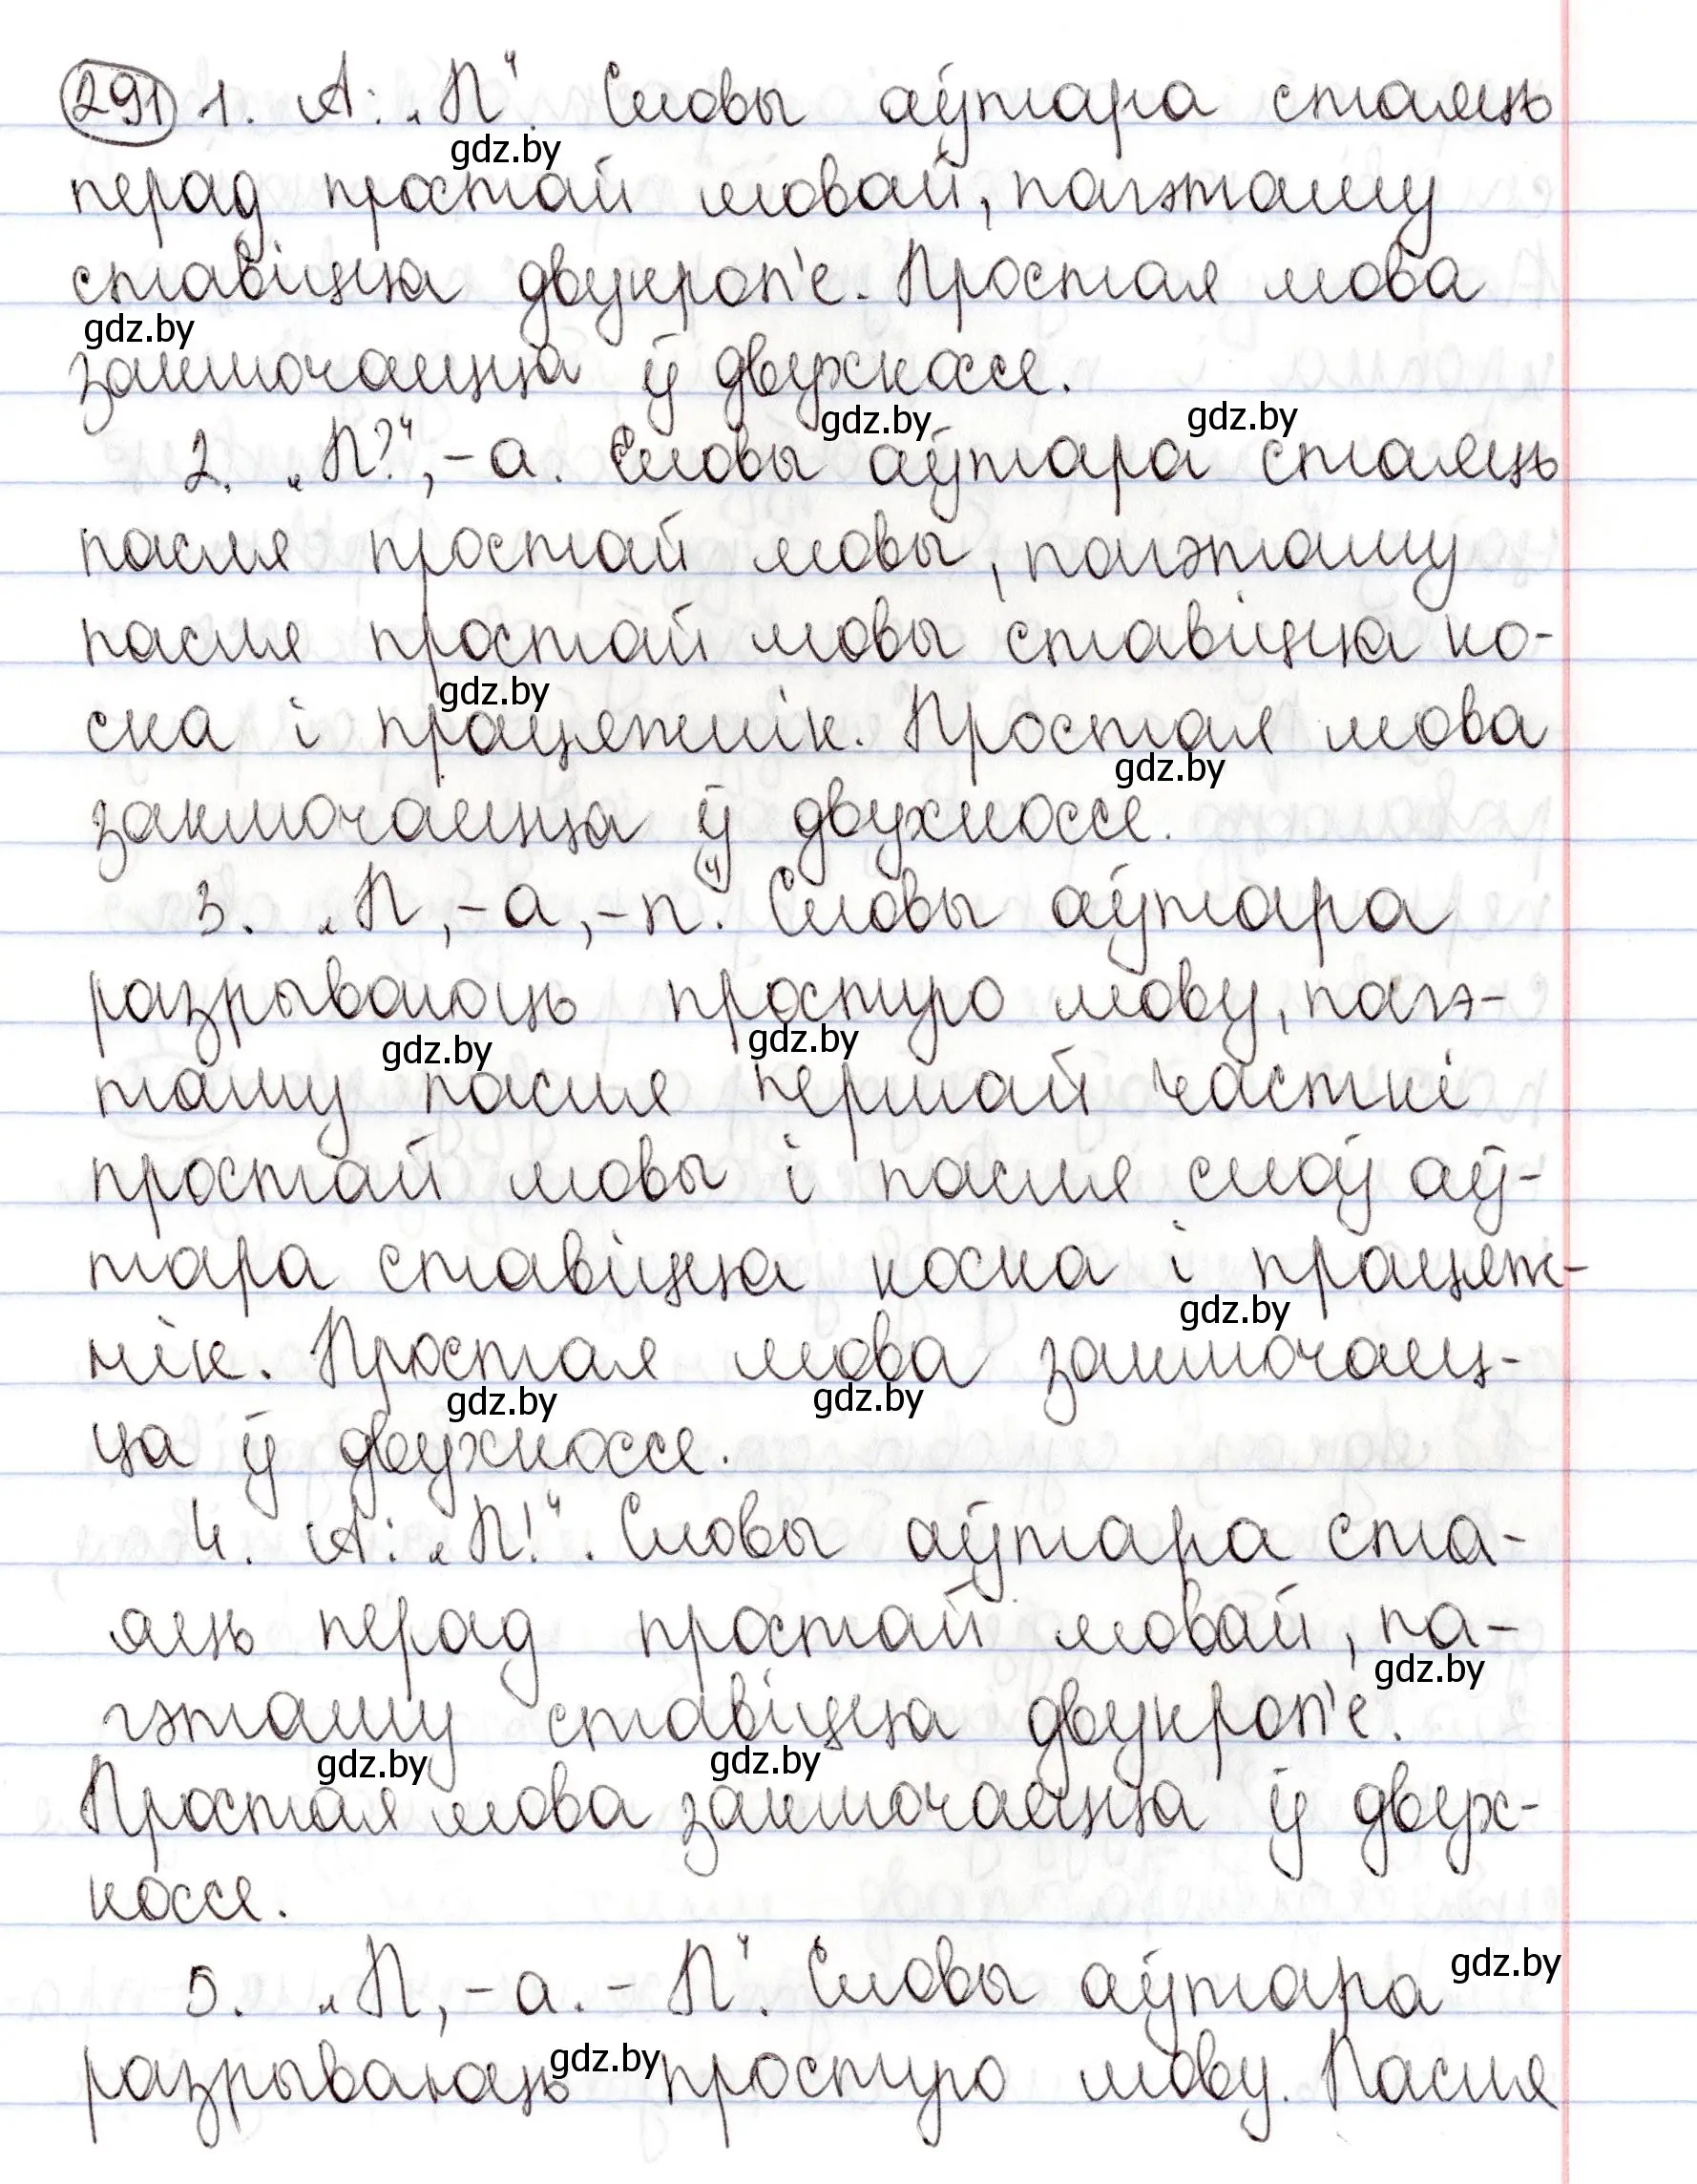 291 1. А: „П“. Словы аўтара стаяць
gdz.by
перад простай мовай, пагэтаму
ставіцца двукроп'е. Простая мова
gdz.by
заключаецца ў двухкоссе.
gdz.by gdz.by
2. „П?“, – а. Словы аўтара стаяць
пасля простай мовы, пагэтаму
пасля простай мовы ставіцца ко-
gdz.by
ска і працяжнік. Простая мова
gdz.by
заключаецца ў двухкоссе.
3. „П, – а, – п“. Словы аўтара
разрываюць простую мову, пагэ-
gdz.by gdz.by
таму пасля першай часткі
простай мовы і пасля слоў аў-
тара ставіцца коска і працяж-
gdz.by
нік. Простая мова заключаец-
gdz.by gdz.by
ца ў двухкоссе.
4. А: „П!“. Словы аўтара ста-
яць перад простай мовай, па-
gdz.by
гэтаму ставіцца двукроп'е.
gdz.by gdz.by
Простая мова заключаецца ў двух-
коссе.
5. „П, – а. – П“. Словы аўтара
gdz.by
разрываюць простую мову. Пасля
gdz.by